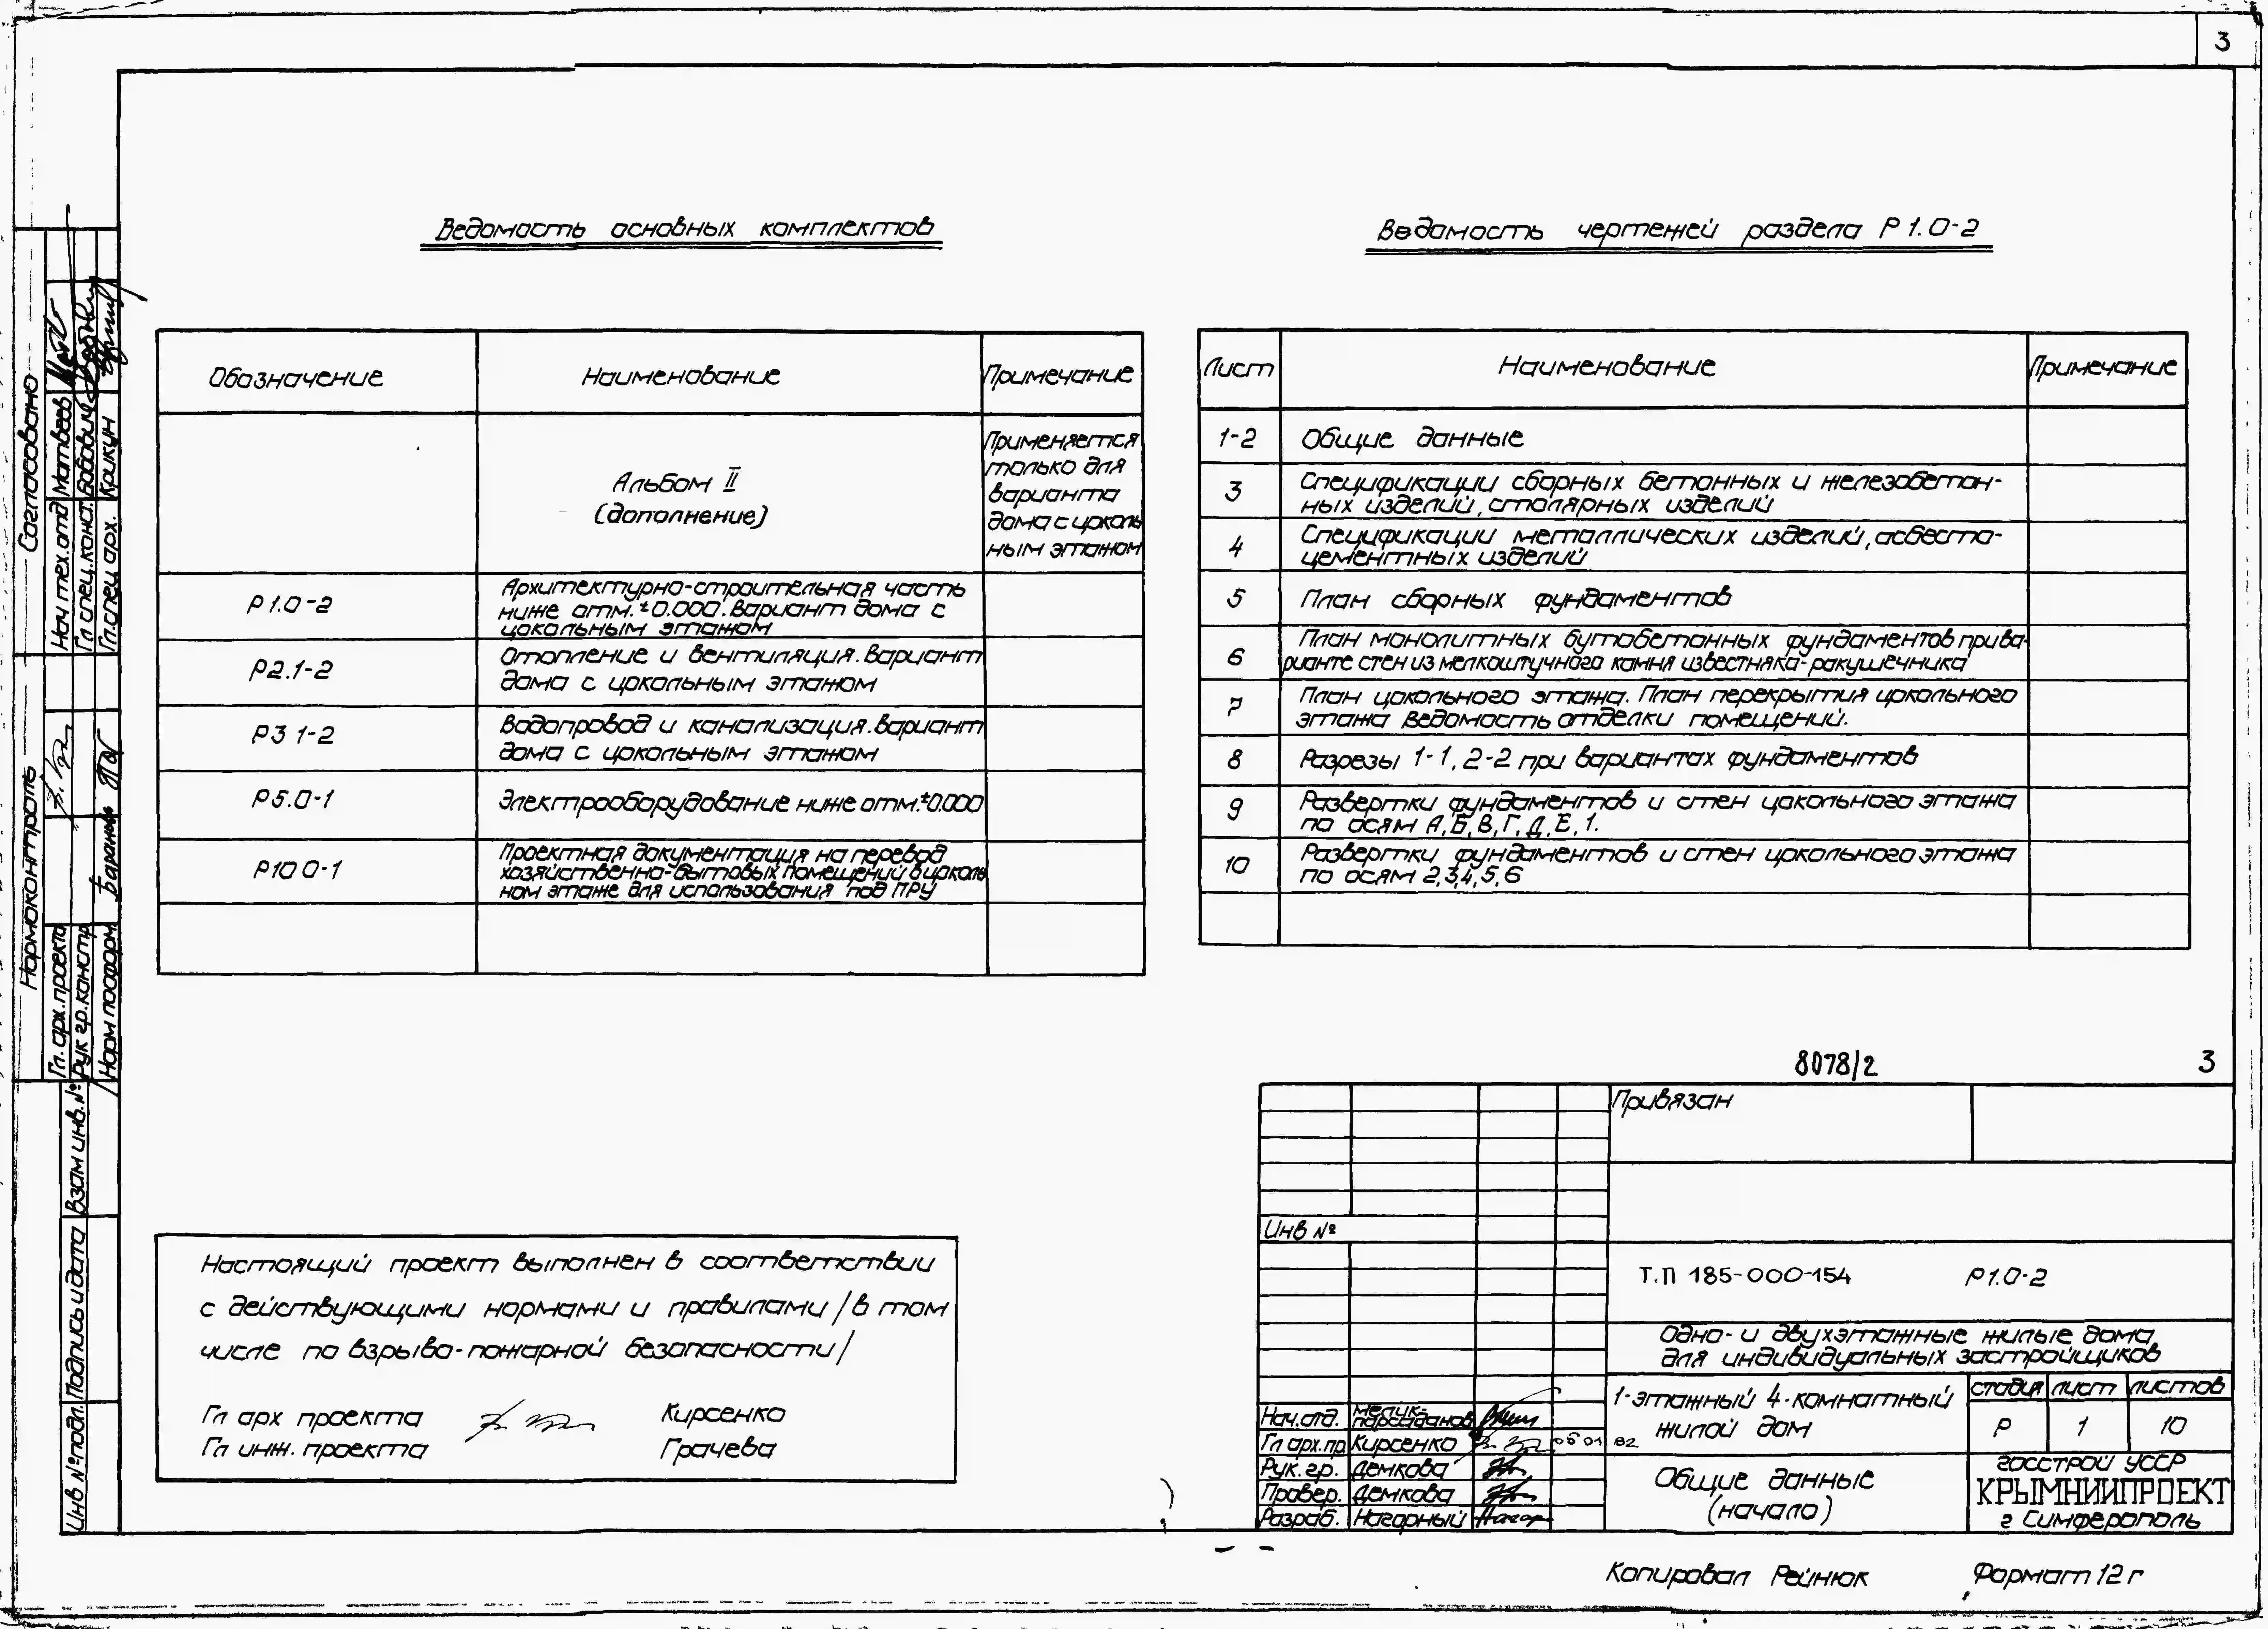 3
Ведомость основных комплектов
Обозначение
Наименование
Примечание
Альбом II
(дополнение)
Применяется
только для
варианта
дома с цоколь
ным этажом
Р1.0-2
Архитектурно-строительная часть
ниже отм.±0.000.Вариант дома с
цокольным этажом
Р2.1-2
Отопление и вентиляция.Вариант
дома с цокольным этажом
Р3 1-2
Водопровод и канализация.Вариант
дома с цокольным этажом
Р5.0-1
Электрооборудование ниже отм.±0.000
Р10 0-1
Проектная документация на перевод
хозяйственно-бытовых помещений в цоколь
ном этаже для использования под ПРУ
Ведомость чертежей раздела Р1.0-2
Лист
Наименование
Примечание
1-2
Общие данные
3
Спецификации сборных бетонных и железобетон-
ных изделий, столярных изделий
4
Спецификации металлических изделий, асбесто-
цементных изделий
5
План сборных фундаментов
6
План монолитных бутобетонных фундаментов при ва-
рианте стен из мелкоштучного камня известняка-ракушечника
7
План цокольного этажа. План перекрытия цокольного
этажа Ведомость отделки помещений.
8
Разрезы 1-1, 2-2 при вариантах фундаментов
9
Развертки фундаментов и стен цокольного этажа
по осям А,Б,В,Г,Д,Е,1.
10
Развертки фундаментов и стен цокольного этажа
по осям 2,3,4,5,6
Согласовано
Нач тех.отд Матвеев
Гл спец.конст. Бабович
Гл.спец арх. Крикун
Нормоконтроль
Гл. арх.проекта
Рук гр.констр
Норм пооформ. Баранова
Взам инв.№
Подпись и дата
Инв №подл.
Настоящий проект выполнен в соответствии
с действующими нормами и правилами /в том
числе по взрыво-пожарной безопасности/
Гл арх проекта Кирсенко
Гл инж. проекта Грачева
8078/2 3
Привязан
Инв №
Т.П 185-000-154 Р1.0-2
Одно- и двухэтажные жилые дома
для индивидуальных застройщиков
1-этажный 4-комнатный
жилой дом
стадия лист листов
Р 1 10
Общие данные
(начало)
Госстрой УССР
КРЫМНИИПРОЕКТ
г Симферополь
Нач.отд. Мелик-
парсаданов
Гл арх.пр Кирсенко 05 01 82
Рук.гр. Демкова
Провер. Демкова
Разраб. Нагорный
Копировал Рейнюк Формат 12г